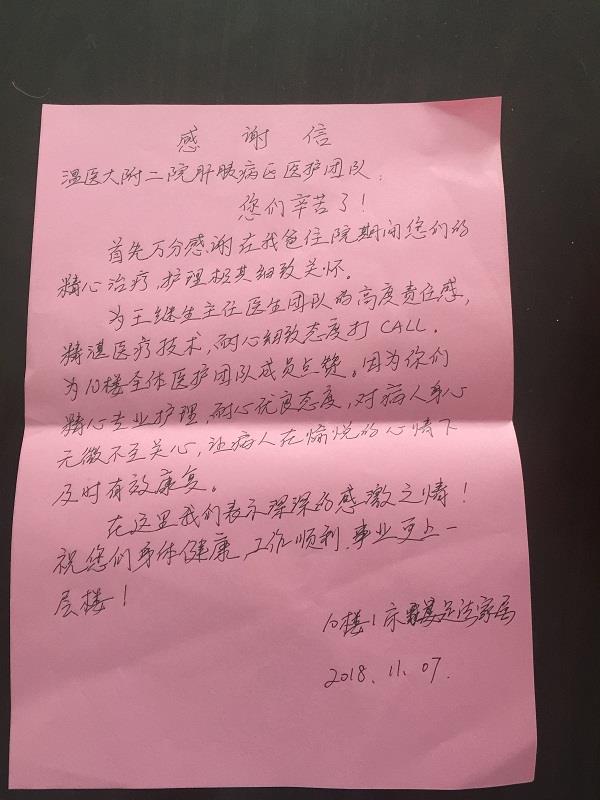 感谢信
温医大附二院肝胰病区医护团队:
您们辛苦了!
首先万分感谢在我爸住院期间您们的
精心治疗,护理极其细致关怀。
为王继生主任医生团队的高度责任感,
精湛医疗技术,耐心细致态度打CALL。
为10楼全体医护团队成员点赞。因为你们
精心专业护理,耐心优良态度,对病人身心
无微不至关心,让病人在愉悦的心情下
及时有效康复。
在这里我们表示深深的感激之情!
祝您们身体健康,工作顺利,事业更上一
层楼!
10楼1床 足法家属
2018.11.07.